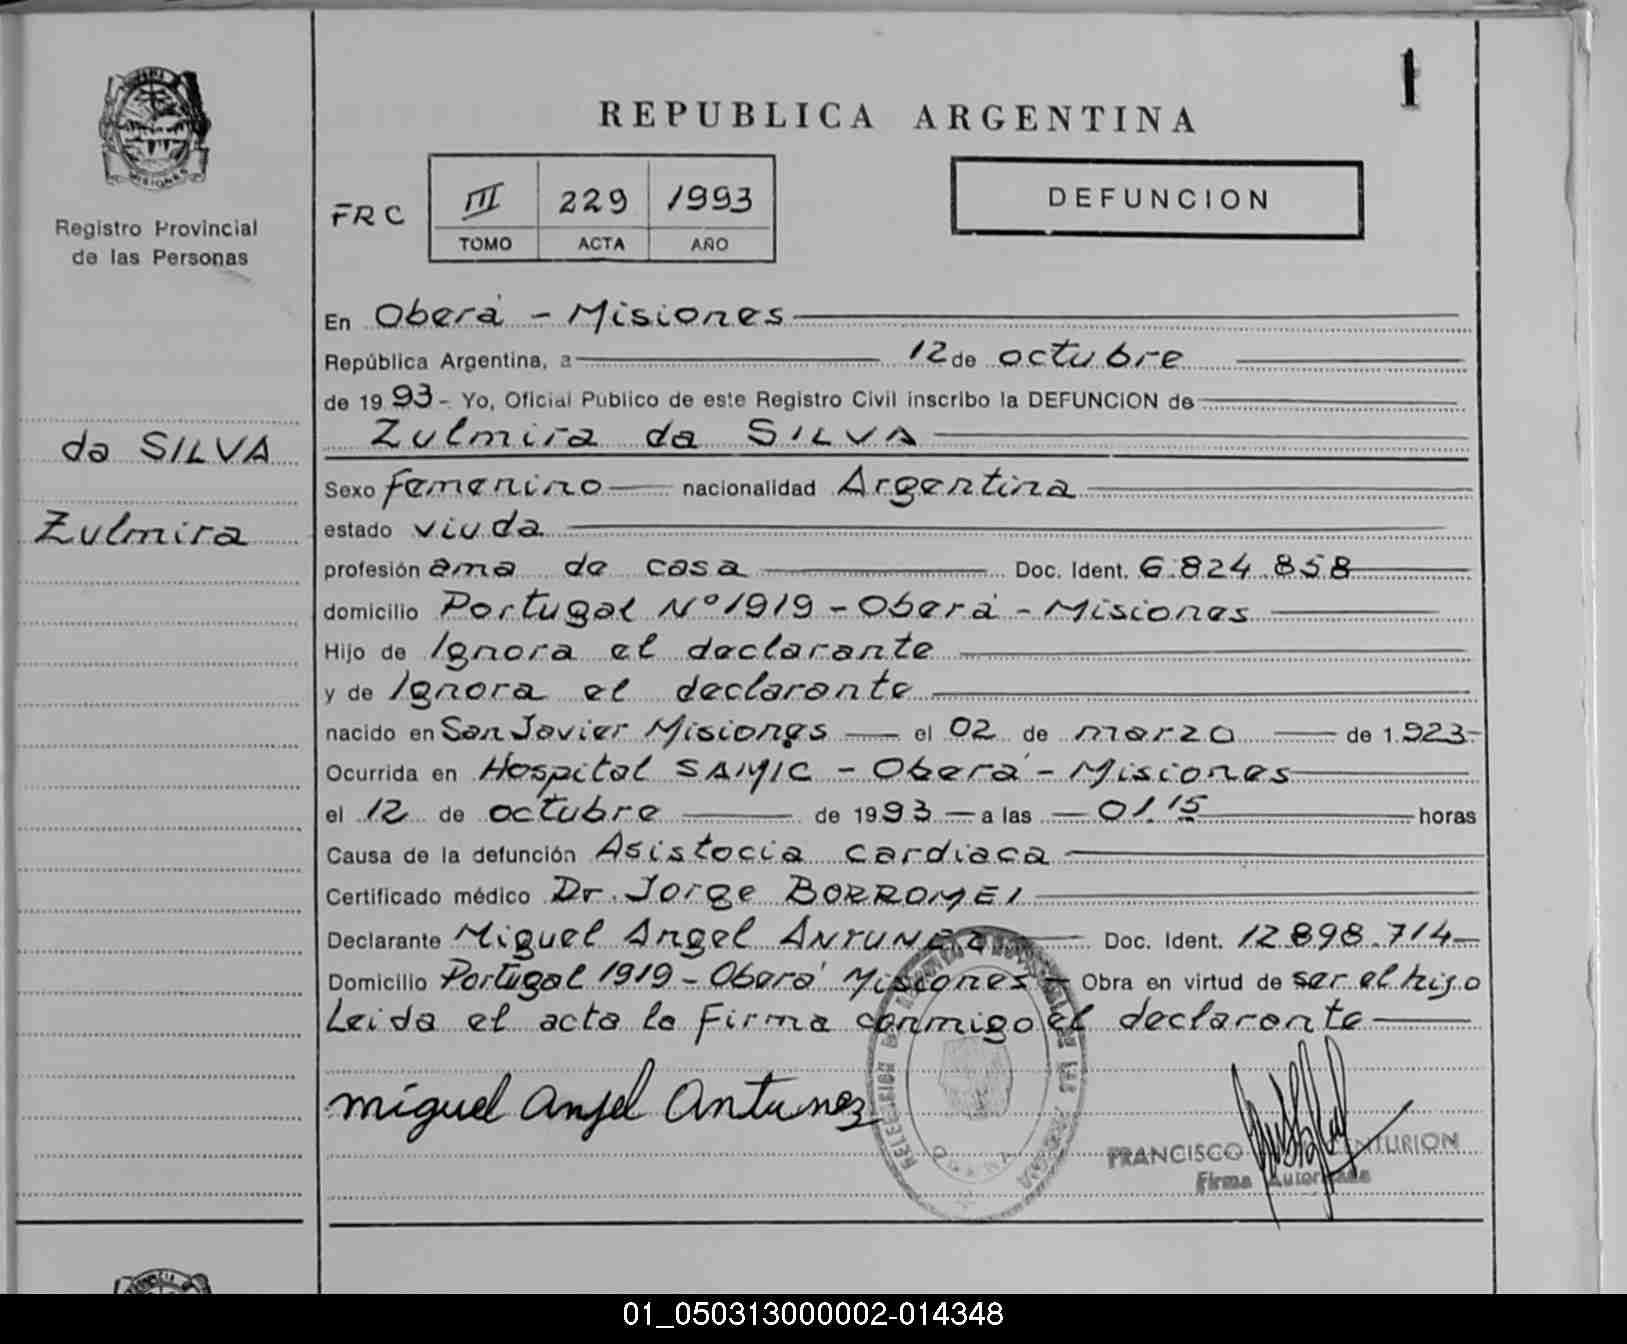 1
REPUBLICA ARGENTINA
MISIONES
Registro Provincial
de las Personas
FRC III 229 1993
TOMO ACTA AÑO
DEFUNCION
da SILVA
Zulmira
En Oberá - Misiones
República Argentina, a 12 de octubre
de 1993- Yo, Oficial Público de este Registro Civil inscribo la DEFUNCION de
Zulmira da SILVA
Sexo femenino nacionalidad Argentina
estado viuda
profesión ama de casa Doc. Ident. 6.824.858
domicilio Portugal Nº 1919 - Oberá - Misiones
Hijo de Ignora el declarante
y de Ignora el declarante
nacido en San Javier Misiones el 02 de marzo de 1.923-
Ocurrida en Hospital SAMIC - Oberá - Misiones
el 12 de octubre de 1993 a las 01.15 horas
Causa de la defunción Asistocia cardiaca
Certificado médico Dr. Jorge BORROMEI
Declarante Miguel Angel ANTUNEZ Doc. Ident. 12.898.714
Domicilio Portugal 1919 - Oberá Misiones Obra en virtud de ser el hijo
Leida el acta la Firma conmigo el declarante
Miguel Angel Antunez
FRANCISCO CENTURION
Firma Autorizada
01_050313000002-014348